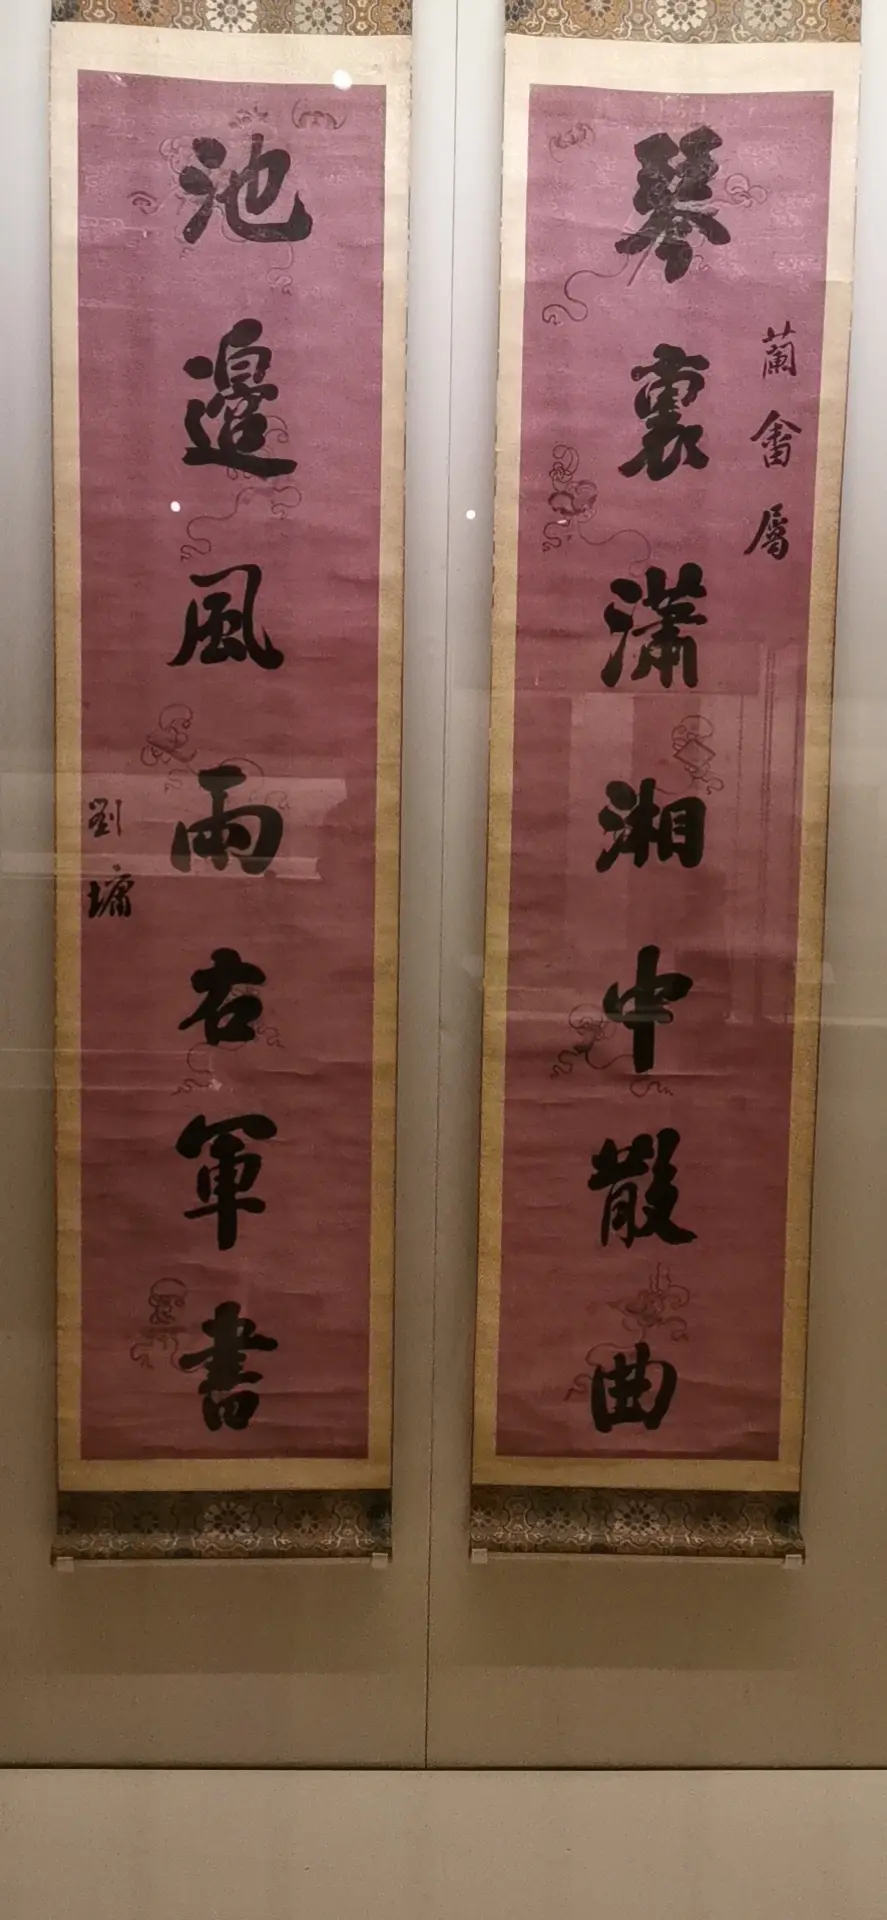 琴裏瀟湘中散曲
蘭畬屬
池邊風雨右軍書
劉墉